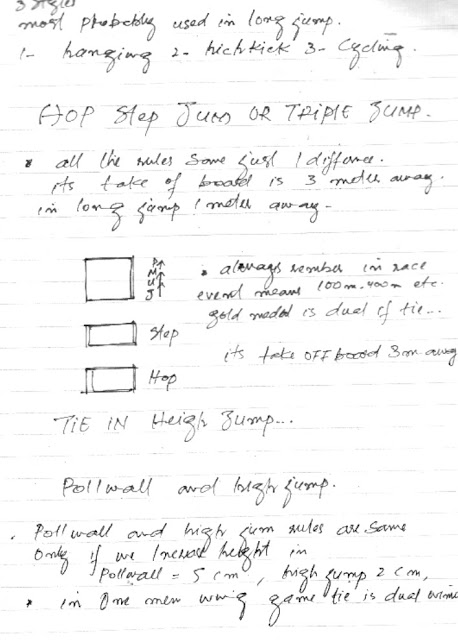 3 styles
most probebly used in long jump.
1- hanging 2- hichkick 3- Cycling.
HOP Step Jump OR TRIPLE JUMP.
* all the rules Same just 1 differnce.
its take of board is 3 meter away.
in long jump 1 meter away-
JUMP
* always rember in race
event means 100m. 400m etc.
gold medal is dual if tie...
Step
its take OFF board 3m away
Hop
TIE IN Heigh Jump...
Pollwall and high jump.
. Pollwall and high jum rules are same
only if we Increse height in
Pollwall = 5 cm, high jump 2 cm,
* in One men game tie is dual